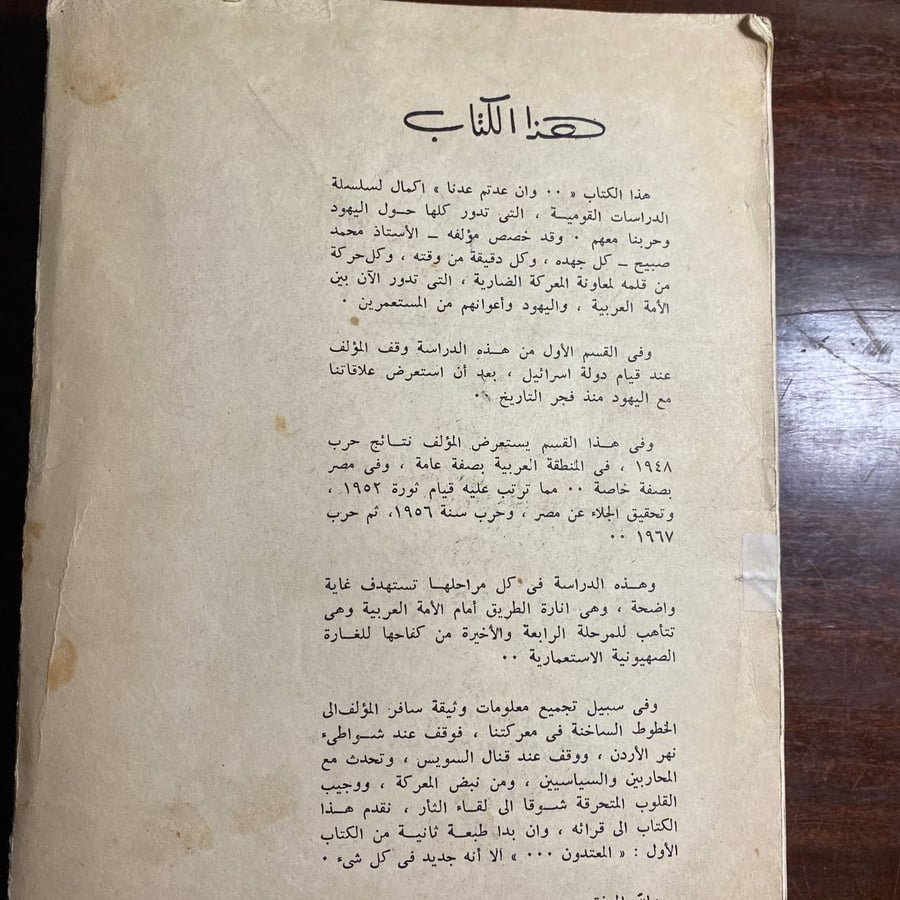 هذا الكتاب
هذا الكتاب « ٠٠ وان عدتم عدنا » اكمال لسلسلة
الدراسات القومية ، التى تدور كلها حول اليهود
وحربنا معهم ٠ وقد خصص مؤلفه ــ الأستاذ محمد
صبيح ــ كل جهده ، وكل دقيقة من وقته ، وكل حركة
من قلمه لمعاونة المعركة الضارية ، التى تدور الآن بين
الأمة العربية ، واليهود وأعوانهم من المستعمرين ٠
وفى القسم الأول من هذه الدراسة وقف المؤلف
عند قيام دولة اسرائيل ، بعد أن استعرض علاقاتنا
مع اليهود منذ فجر التاريخ ٠٠
وفى هذا القسم يستعرض المؤلف نتائج حرب
١٩٤٨ ، فى المنطقة العربية بصفة عامة ، وفى مصر
بصفة خاصة ٠٠ مما ترتب عليه قيام ثورة ١٩٥٢ ،
وتحقيق الجلاء عن مصر ، وحرب سنة ١٩٥٦، ثم حرب
١٩٦٧ ٠٠
وهذه الدراسة فى كل مراحلها تستهدف غاية
واضحة ، وهى انارة الطريق أمام الأمة العربية وهى
تتأهب للمرحلة الرابعة والأخيرة من كفاحها للغارة
الصهيونية الاستعمارية ٠٠
وفى سبيل تجميع معلومات وثيقة سافر المؤلف الى
الخطوط الساخنة فى معركتنا ، فوقف عند شواطىء
نهر الأردن ، ووقف عند قنال السويس ، وتحدث مع
المحاربين والسياسيين ، ومن نبض المعركة ، ووجيب
القلوب المتحرقة شوقا الى لقاء الثأر ، نقدم هذا
الكتاب الى قرائه ، وان بدا طبعة ثانية من الكتاب
الأول : « المعتدون ٠٠٠ » الا أنه جديد فى كل شىء ٠